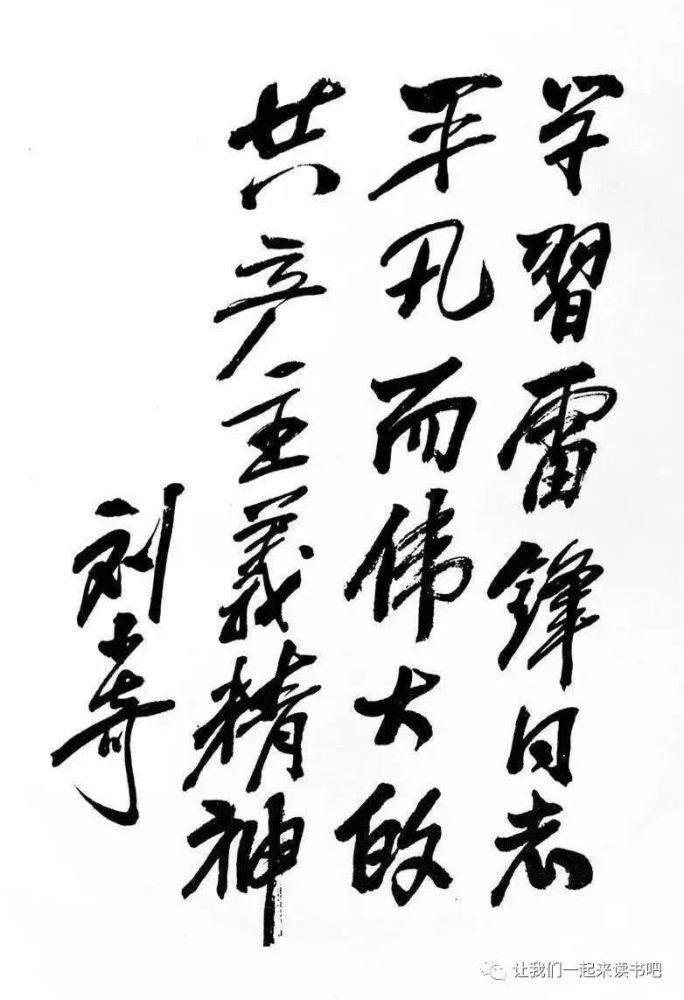 学習雷锋同志
平凡而伟大的
共产主義精神
刘少奇
让我们一起来读书吧